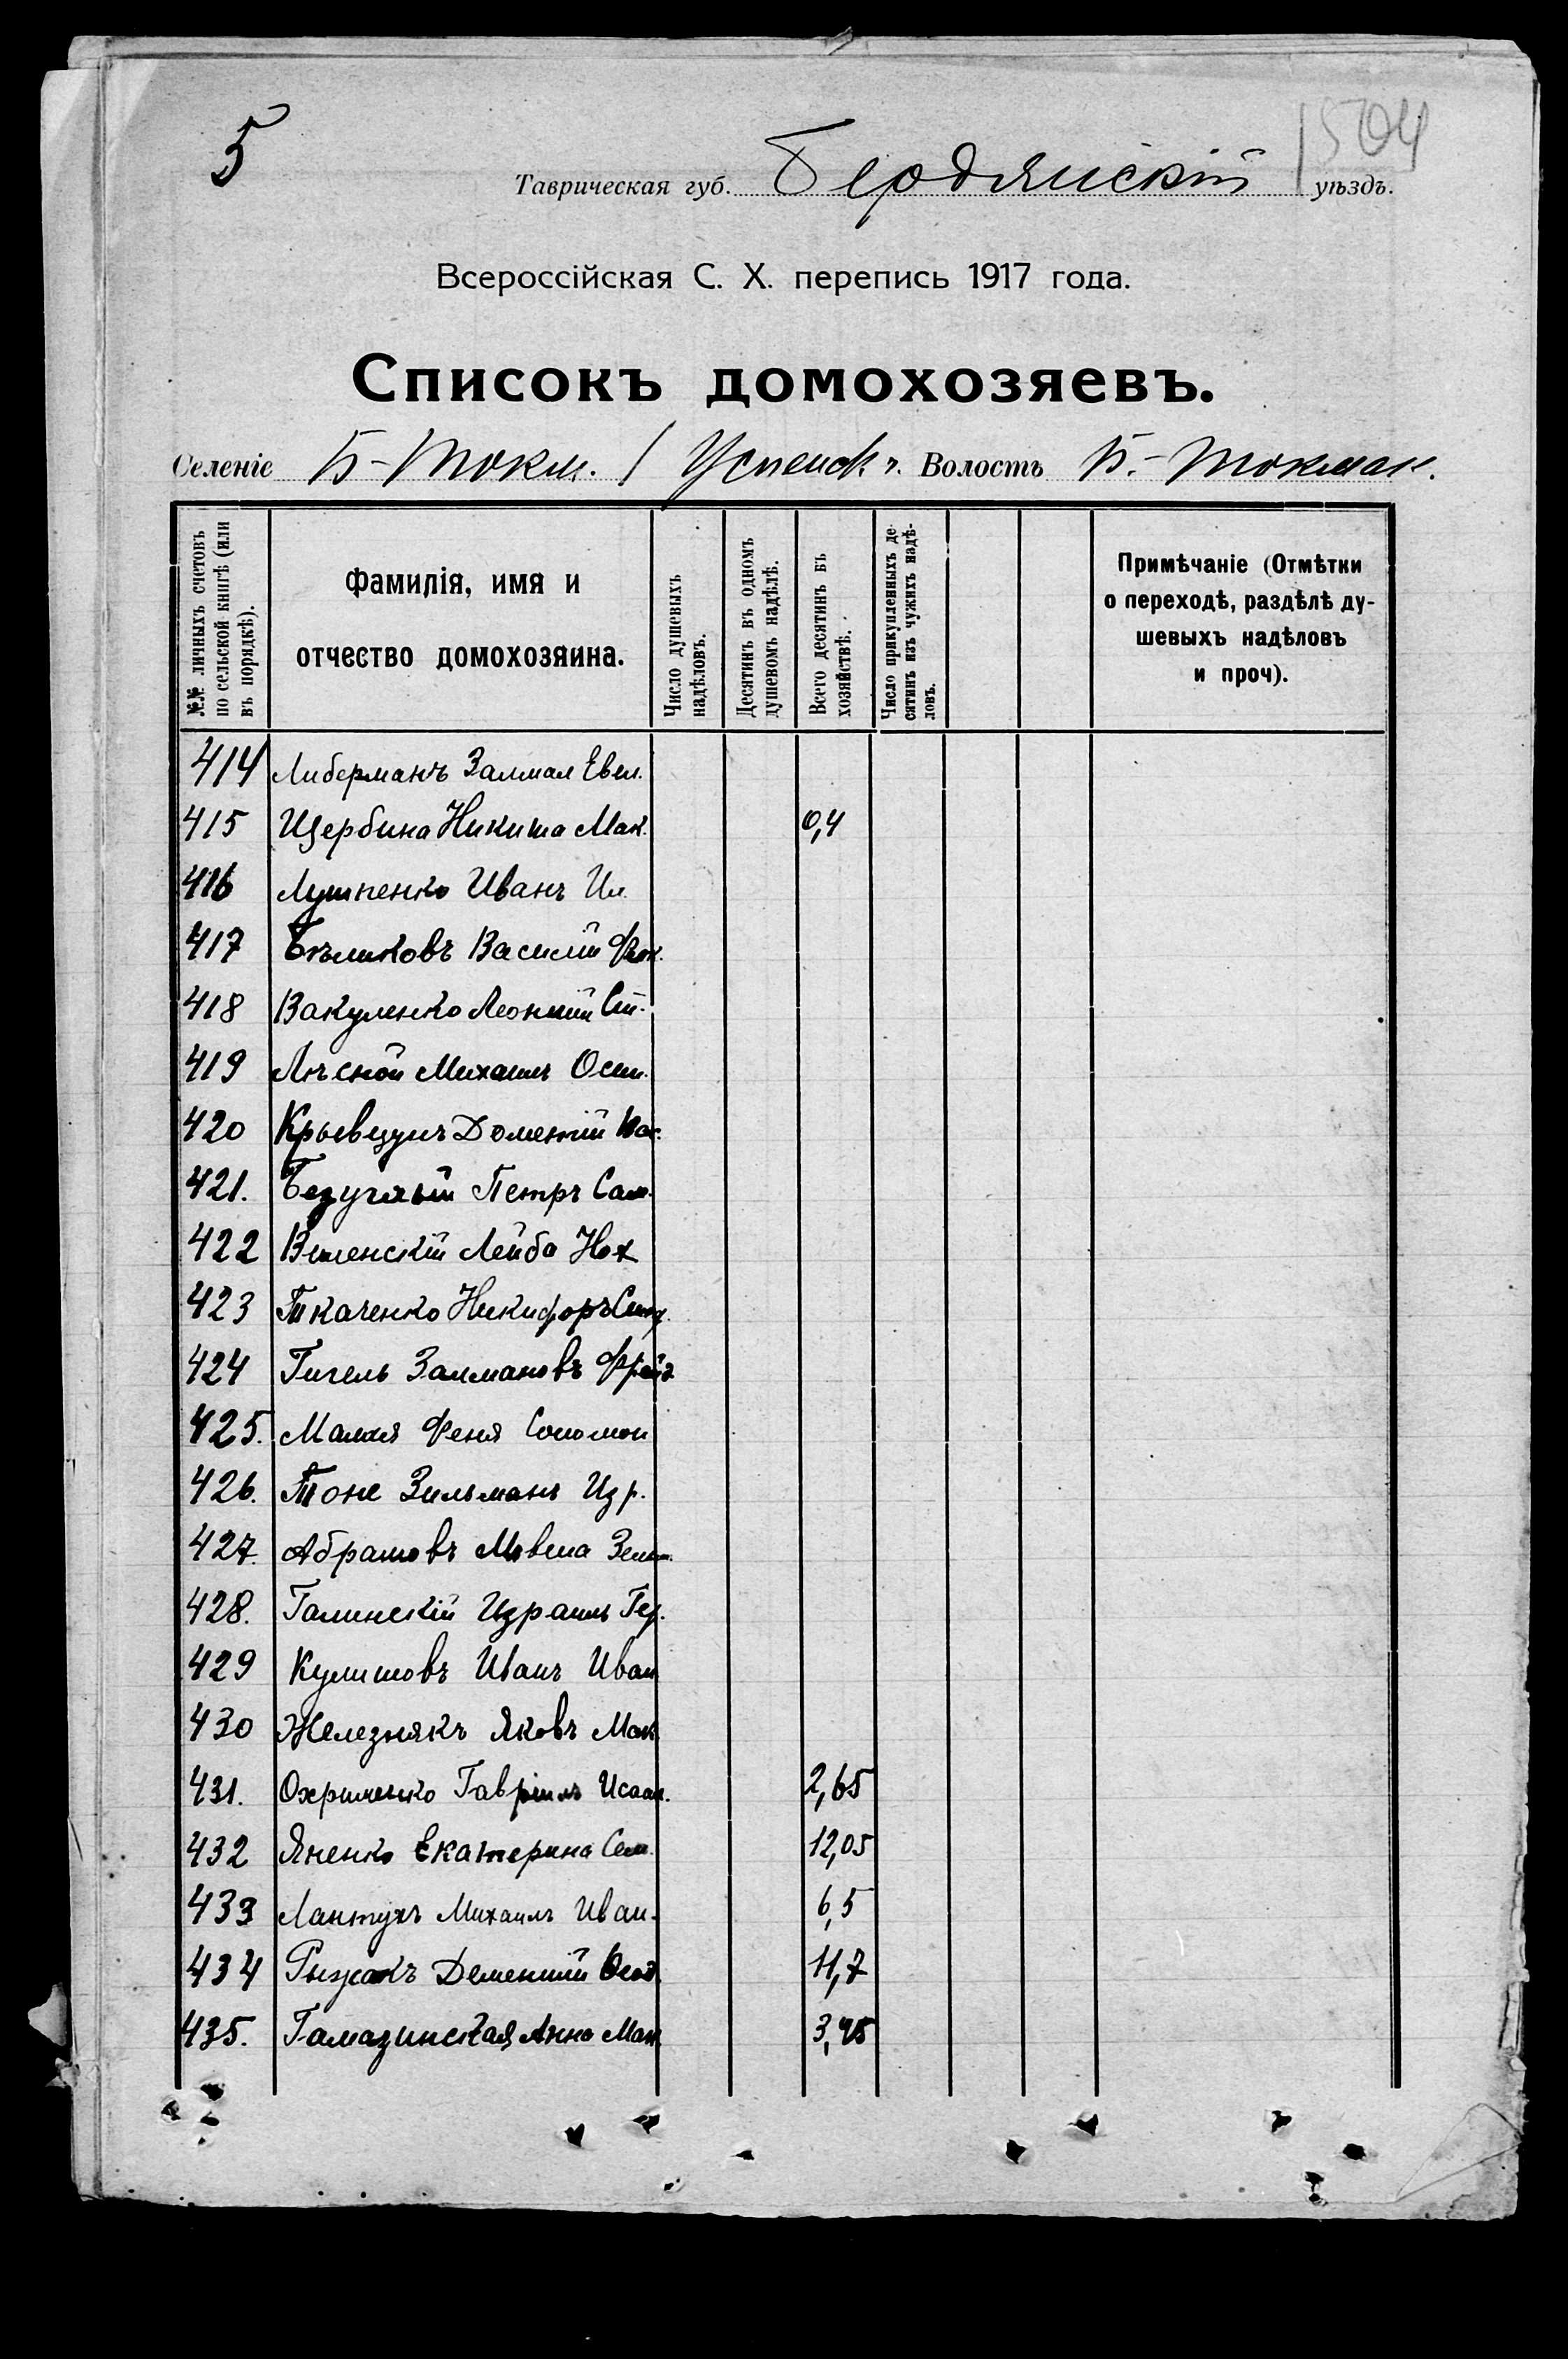 5
504
Таврическая губ. Бердянскій уѣздъ.
Всероссійская С. Х. перепись 1917 года.
Списокъ домохозяевъ.
Селеніе Б-Токм. / Успенск. Волость Б.-Токмак.
№№ личныхъ счетовъ
по сельской книгѣ (или
въ порядкѣ).
Фамилія, имя и
отчество домохозяина.
Число душевыхъ
надѣловъ.
Десятинъ въ одномъ
душевомъ надѣлѣ.
Всего десятинъ въ
хозяйствѣ.
Число прикупленныхъ де-
сятинъ изъ чужихъ надѣ-
ловъ.
Примѣчаніе (Отмѣтки
о переходѣ, раздѣлѣ ду-
шевыхъ надѣловъ
и проч).
414 Либерманъ Залман Евел.
415 Щербина Никита Мак. 0,4
416 Лушпенко Иванъ Ил.
417 Бѣликовъ Василій
418 Вакуленко Леонтій Ст.
419 Лѣсной Михаилъ Осип.
420 Крывцунъ Дометій Вас.
421. Безуглый Петръ Сам.
422 Виленскій Лейба Нох
423 Ткаченко Никифоръ
424 Гигель Залмановъ
425. Малая Феня Соломон
426. Тоне Зильманъ Изр.
427. Абрамовъ Мовша Зельм.
428. Галинскій Израиль Гер.
429 Кулишовъ Иванъ Иван
430 Железнякъ Яковъ Мак
431. Охрименко Гавріилъ Исаак. 2,65
432 Яненко Екатерина Сем. 12,05
433 Лантухъ Михаилъ Иван. 6,5
434 Рыжакъ Дементій Феод. 11,7
435. Гамазинская Анна Мак. 3,95